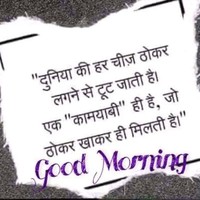 "दुनिया की हर चीज़ ठोकर
लगने से टूट जाती है।
एक "कामयाबी" ही है, जो
ठोकर खाकर ही मिलती है।"
Good Morning